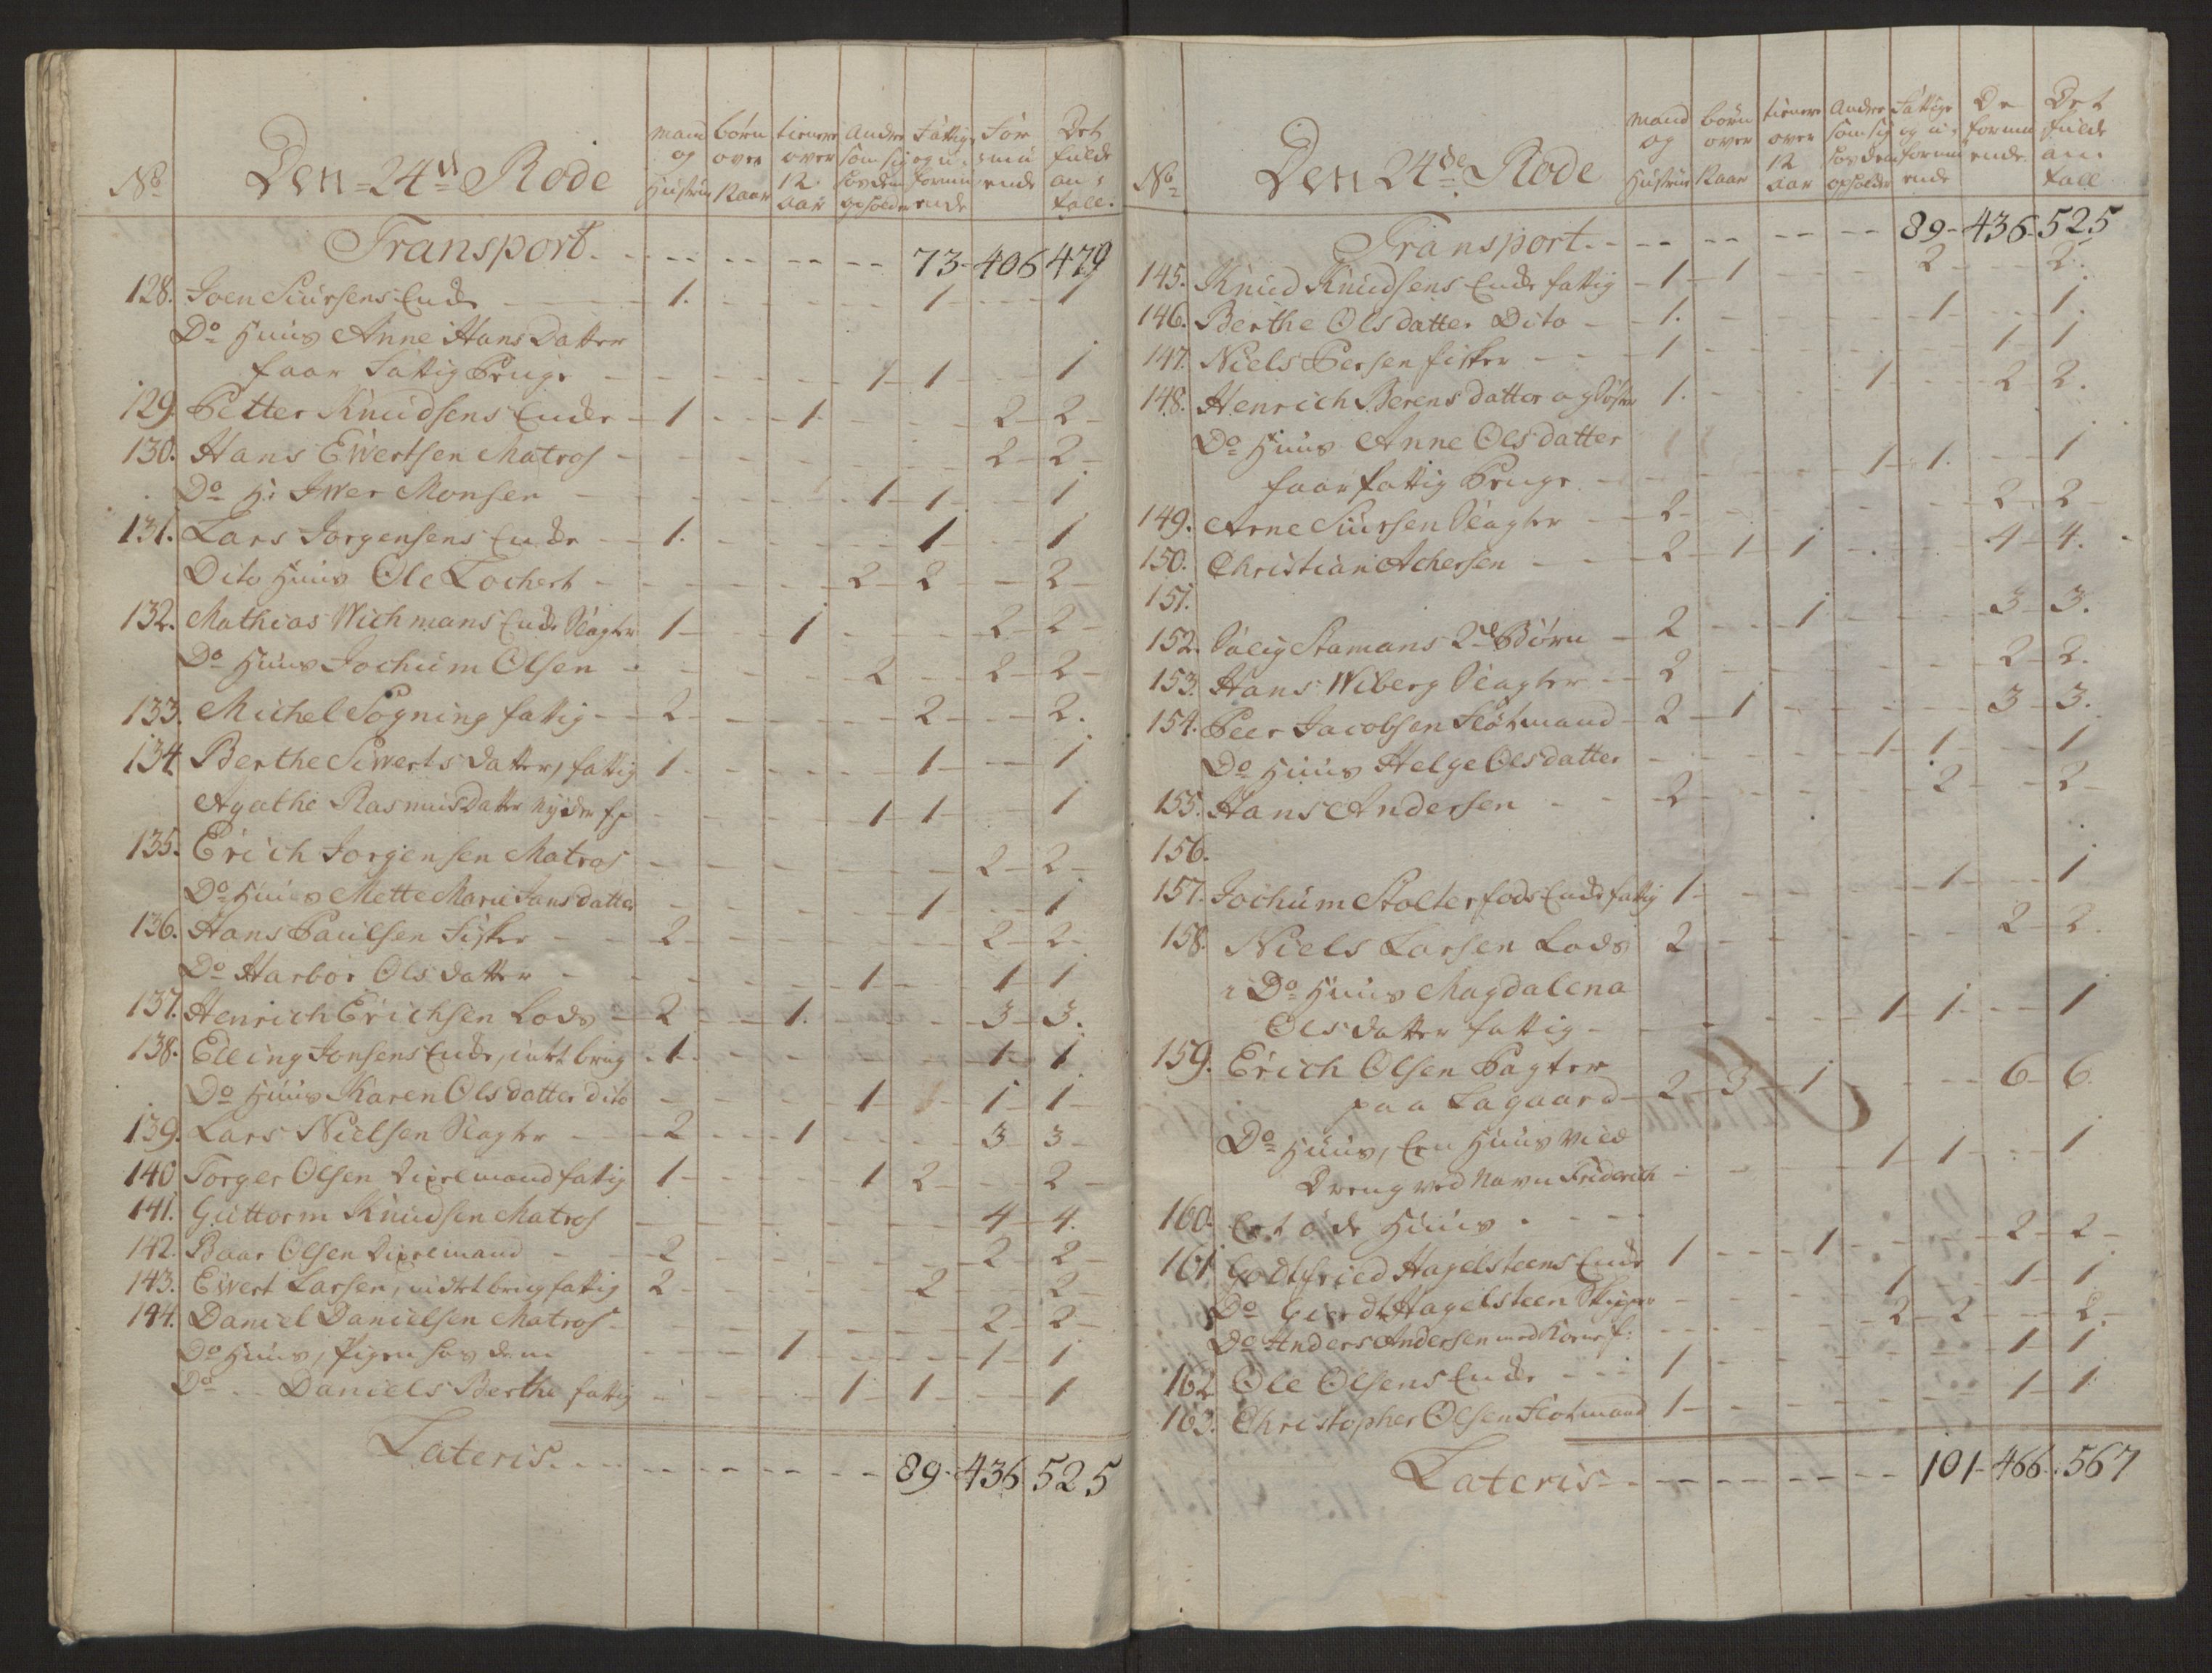 No Den 24de Rode Mand og Hustrue börn over 12 aar tienere over 12 aar Andre som sig hos dem opholder Fattige og u-formuende For muende Det fulde an tall.
Transport. - - - - - 73 - 406 479
128. Joen Siursens Enke 1. - 1 - 1
Do Huus Anne Hans Datter
faar Fattig Penge - 1 - 1 - 1
129. Petter Knudsens Enke - 1 - 1 - 2 - 2
130. Hans Ewertsen Matros - 2 - 2
Do H: Iwer Monsen - 1 - 1 - 1
131. Lars Jorgensens Enke - 1. - 1 - 1
Dito Huus Ole Lochert - 2 - 2 - 2
132. Mathias Wichmans Enke Slagter 1 - 1 - 2 - 2
Do Huus Jochum Olsen - 2 - 2 - 2
133. Michel Sogning fattig - 2 - 2 - 2.
134 Berthe Siwerts datter, fattig 1 - 1 - 1
Agathe Rasmusdatter nyder fp 1 - 1 - 1
135. Erich Jorgensen Matros - 2 - 2
Do Huus Mette Marie Jansdatter - 1 - 1
136. Hans Paulsen Fisker - 2 - 2 - 2
Do Harbor Olsdatter - 1 - 1 - 1
137. Henrich Erichsen Lods - 2 - 1. - 3 - 3.
138. Elling Jonsens Enke, intet brug - 1 - 1 - 1
Do Huus Karen Olsdatter dito - 1 - 1 - 1
139. Lars Nielsen Slagter - 2 - 1 - 3 - 3
140 Torger Olsen Dixelmand fattig 1 - 1 2 - 2
141. Guttorm Knudsen Matros - 4 - 4.
142. Baar Olsen Dixelmand - 2 - 2 - 2
143. Ewert Larsen, intet brug fattig 2 - 2 - 2
144. Daniel Danielsen Matros - 2 - 2
Do Huus, Pigen hos dem - 1 - 1 - 1
Do - Daniels Berthe fattig - 1 - 1 - 1
Lateris. - - - - - 89 - 436 525
No Den 24de Rode Mand og Hustrue börn over 12 aar tienere over 12 aar Andre som sig hos dem opholder Fattige og u-formuende De formuende. Det fulde an tall
Transport. - - - - 89 - 436 - 525
145. Knud Knudsens Enke fattig - 1 - 1 - 2 - 2.
146. Berthe Olsdatter Dito - 1. - 1 - 1.
147. Niels Persen fisker - 1 - 1 - 1
148. Henrich Berens datter og Söster 1. - 1 - 2 - 2.
Do Huus Anne Olsdatter
faar fattig Penge - 1 - 1. - 1
149. Arne Siursen Slagter - 2 - 2 - 2
150. Christian Achersen - 2 - 1 - 1 - 4 - 4.
151.
152. Salig Stamans 2de Börn - 2 - 1 - 3 - 3.
153. Hans Wiberg Slagter - 2 - 2 - 2.
154. Peer Jacobsen Flötmand - 2 - 1 - 3 - 3.
Do Huus Helge Olsdatter - 1 - 1 - 1
155. Hans Andersen - 2 - 2 - 2
156.
157. Jochum Stolterfods Enke fattig 1 - 1 - 1
158. Niels Larsen Lods 2 - 2 - 2.
i Do Huus Magdalena
Olsdatter fattig - 1 - 1 - 1
159. Erich Olsen Pagter
paa Lagaard - 2 - 3 - 1 - 6 - 6.
Do Huus, Een Huus Mied
Dreng ved Navn Friderich - 1 - 1 - 1
160. Et öde Huus -
161. Godtfried Hagelsteens Enke 1 - 1 - 2 - 2
Do Gierdt Hagelsteen Skipper - 1 - 1 - 1
Do Anders Andersen med Kone f: - 2 - 2 - 2.
162 Ole Olsens Enke - 1 - 1 - 1
163. Christopher Olsen Flotmand 1 - 1 - 1
Lateris - - - - - 101 - 466 . 567